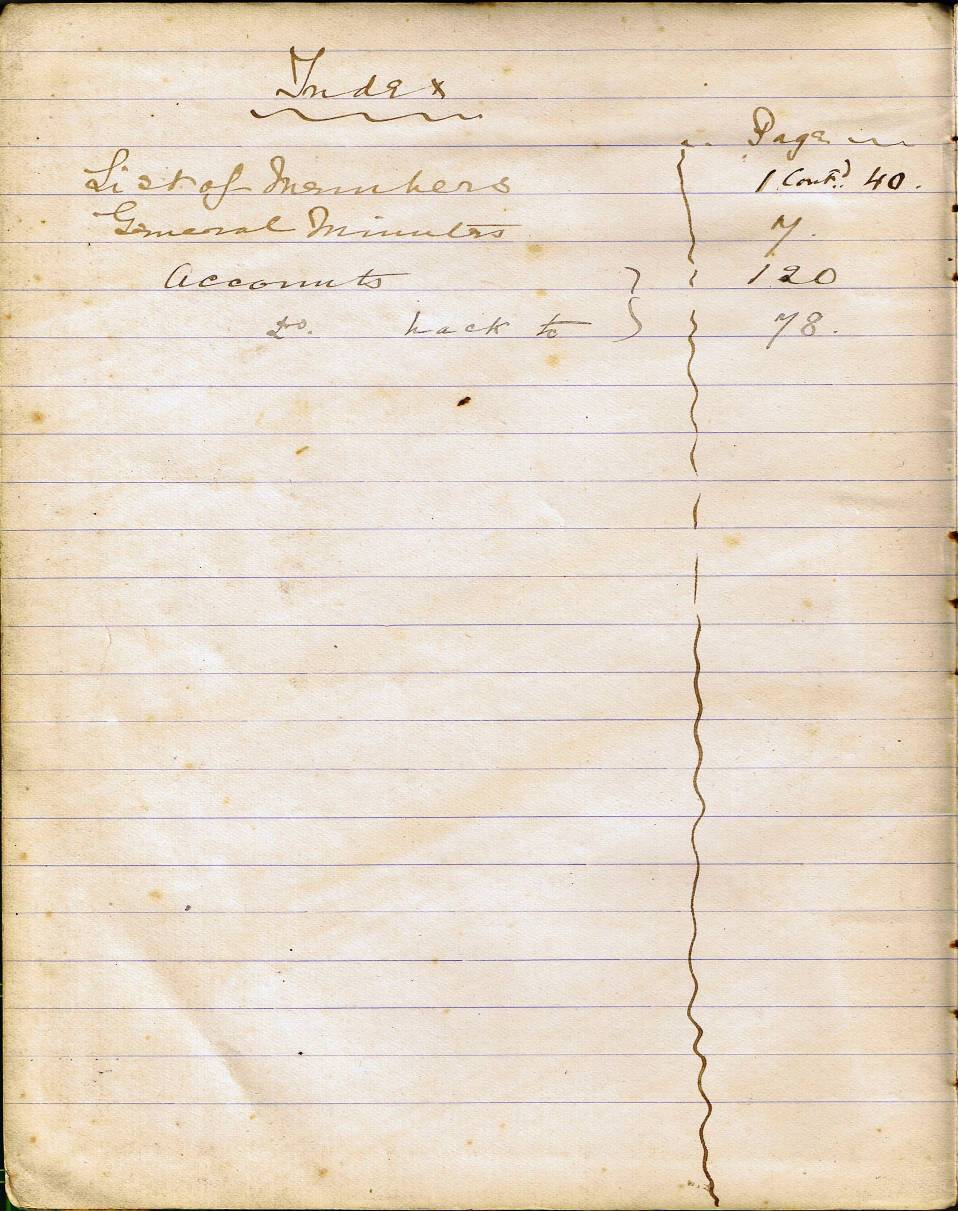 Index
Page
List of Members 1 Contd. 40.
General Minutes 7.
Accounts 120
Do. back to 78.